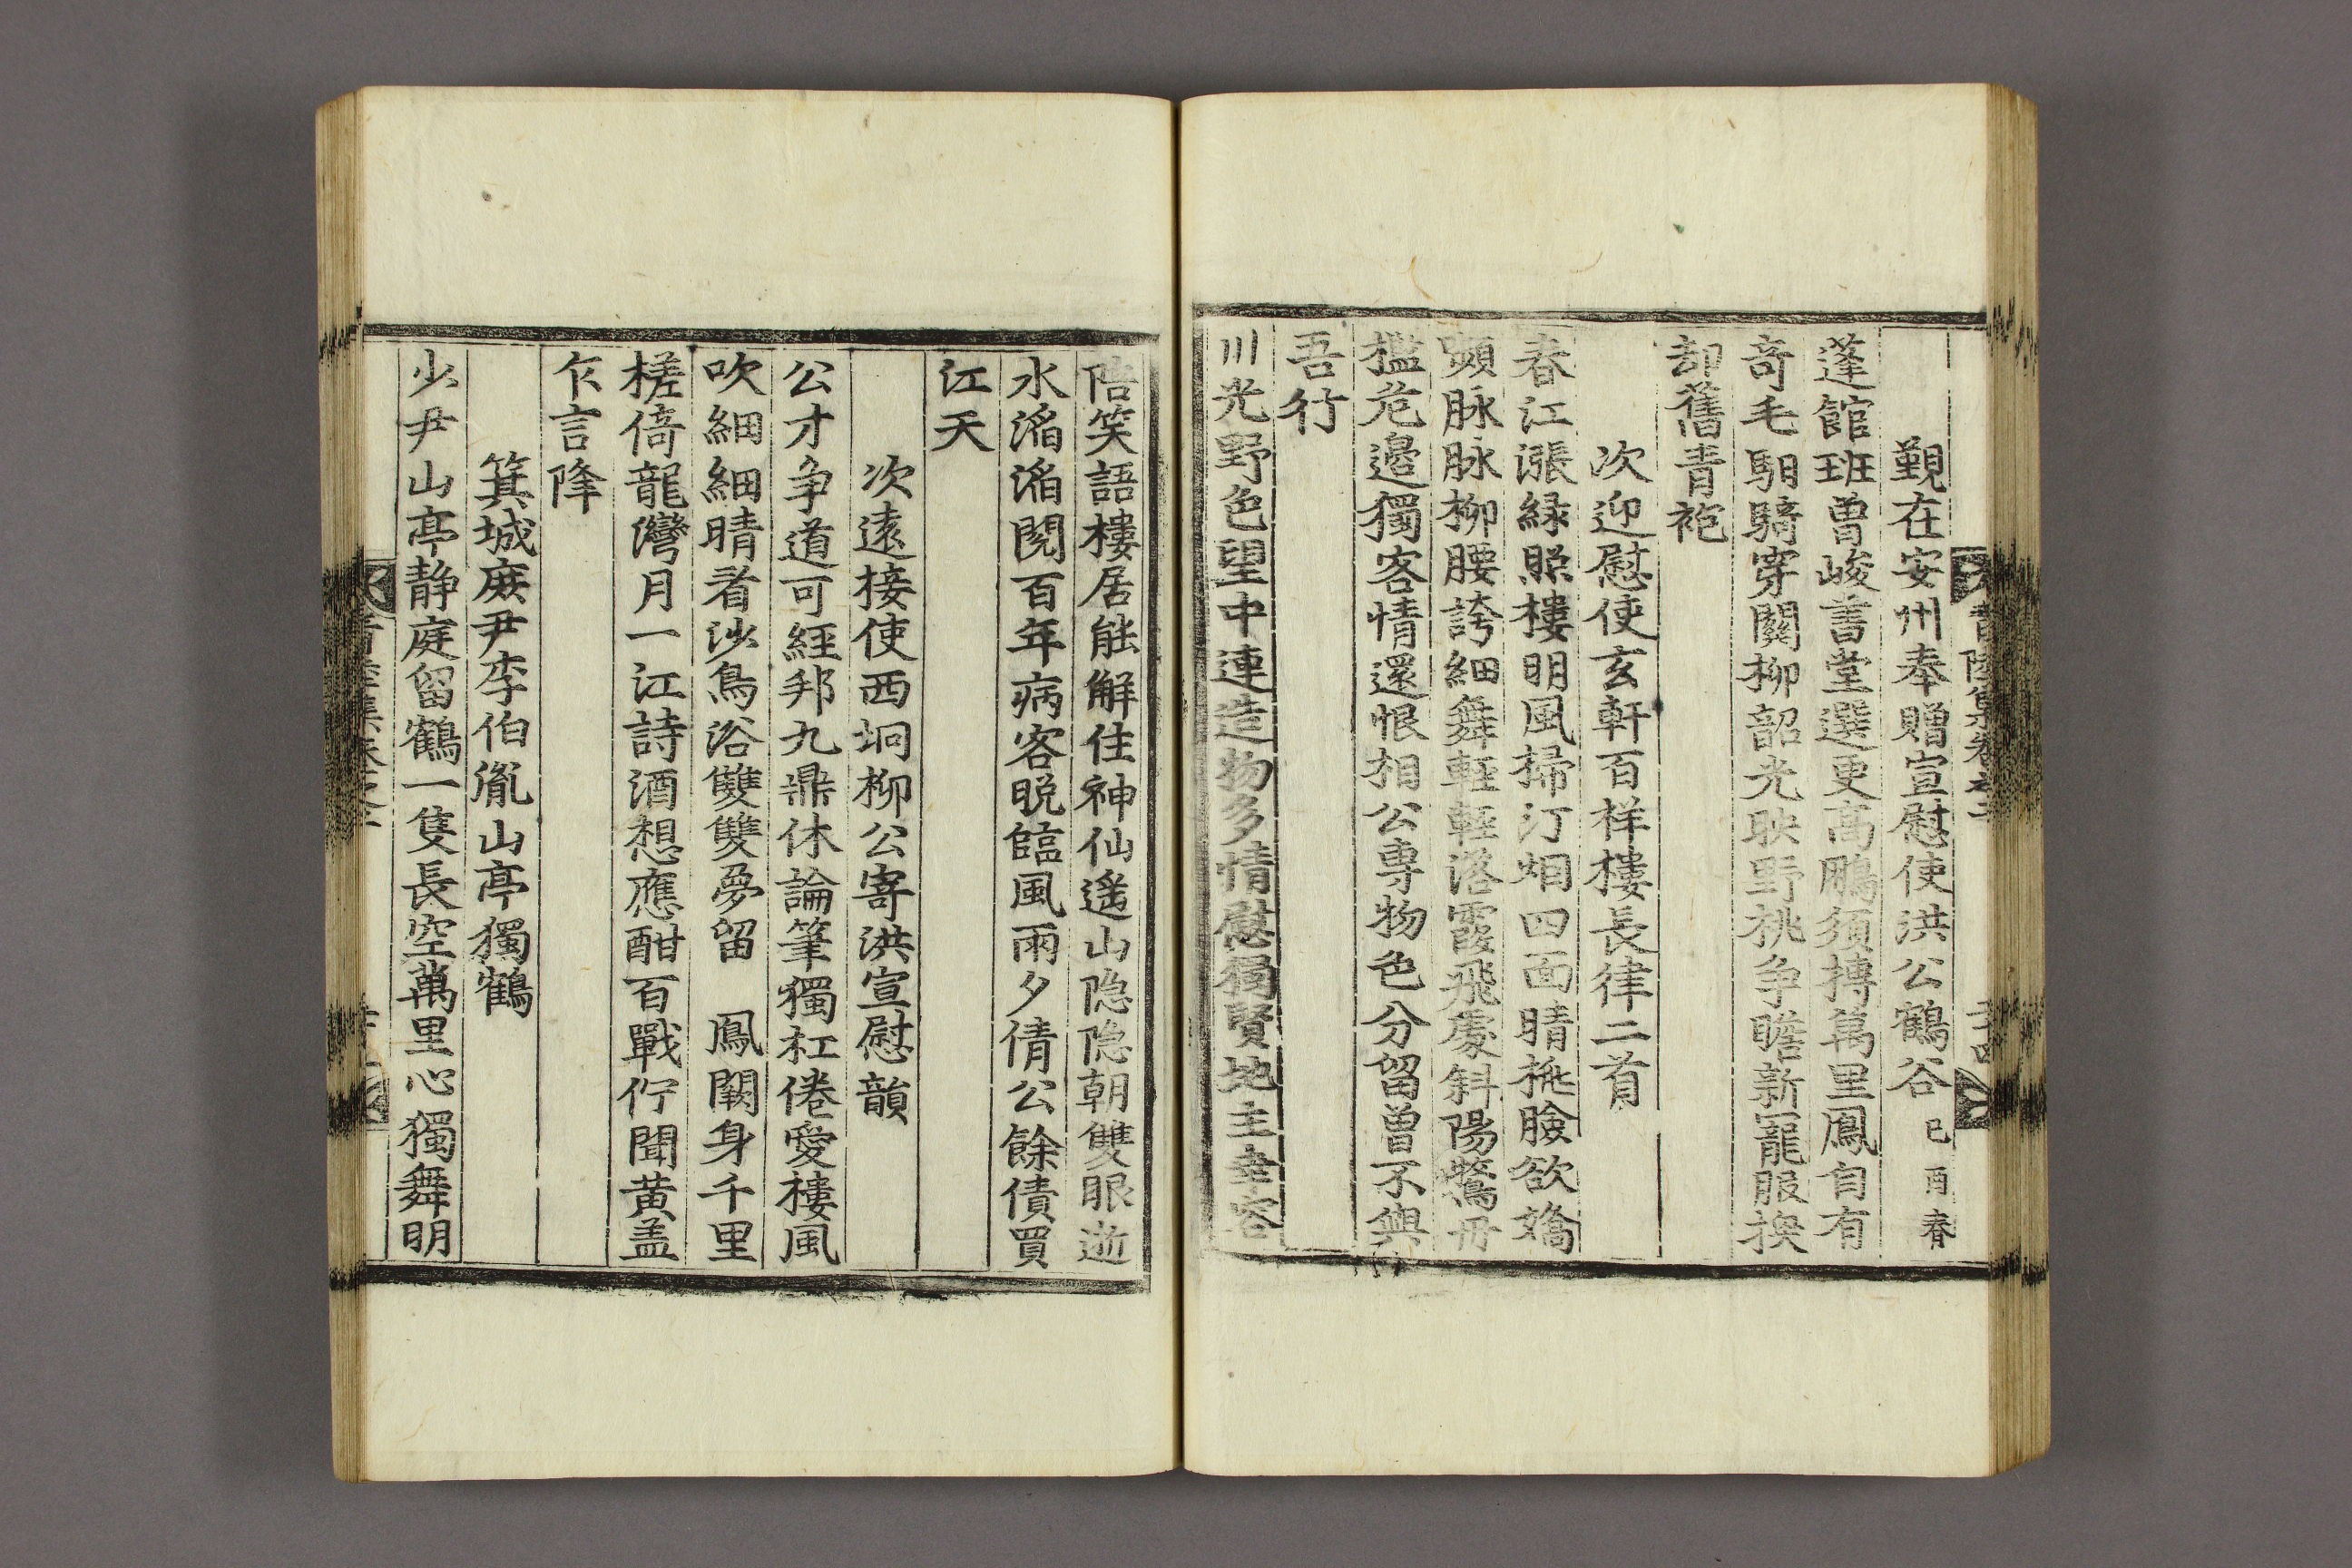 覲在安州奉贈宣慰使洪公鶴谷 己酉春
蓬館班曾峻書堂選更高鵬須搏萬里鳳自有
奇毛馹騎穿關柳韶光映野桃争瞻新寵服換
却舊青袍
次迎慰使玄軒百祥樓長律二首
春江漲緑照樓明風掃汀烟四面晴桃臉欲嬌
嚬脉脉柳腰誇細舞輕輕落霞飛處斜陽鶩冊
檻危邉獨客情還恨相公専物色分留曽不與
吾行
川光野色望中連造物多情慰獨賢地主幸容
陪笑語樓居能解住神仙遙山隐隐朝雙眼逝
水滔滔閱百年病客晩臨風雨夕倩公餘債買
江天
次遠接使西坰柳公寄洪宣慰韻
公才争道可經邦九鼎休論筆獨杠倦愛樓風
吹細細晴看沙鳥浴雙雙夢留 鳳闕身千里
槎倚龍灣月一江詩酒想應酣百戰佇聞黄盖
乍言降
箕城庶尹李伯胤山亭獨鶴
少尹山亭静庭留鶴一隻長空萬里心獨舞明